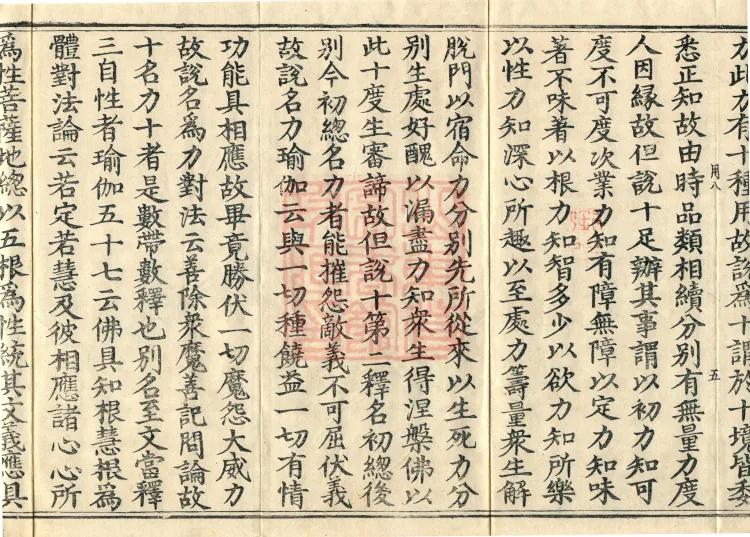 力此力有十種用故說為十謂於十境皆委
悉正知故由時品類相續分別有無量力度
用八
五
人因緣故但說十足辦其事謂以初力知可
度不可度次業力知有障無障以定力知味
著不味著以根力知智多少以欲力知所樂
以性力知深心所趣以至處力籌量衆生解
脫門以宿命力分別先所從來以生死力分
別生處好醜以漏盡力知衆生得涅槃佛以
此十度生審諦故但說十第二釋名初總後
別今初總名力者能摧怨敵義不可屈伏義
故說名力瑜伽云與一切種饒益一切有情
功能具相應故畢竟勝伏一切魔怨大威力
故說名為力對法云善除衆魔善記問論故
十名力十者是數帶數釋也別名至文當釋
三自性者瑜伽五十七云佛具知根慧根為
體對法論云若定若慧及彼相應諸心心所
為性菩薩地總以五根為性統其文義應具